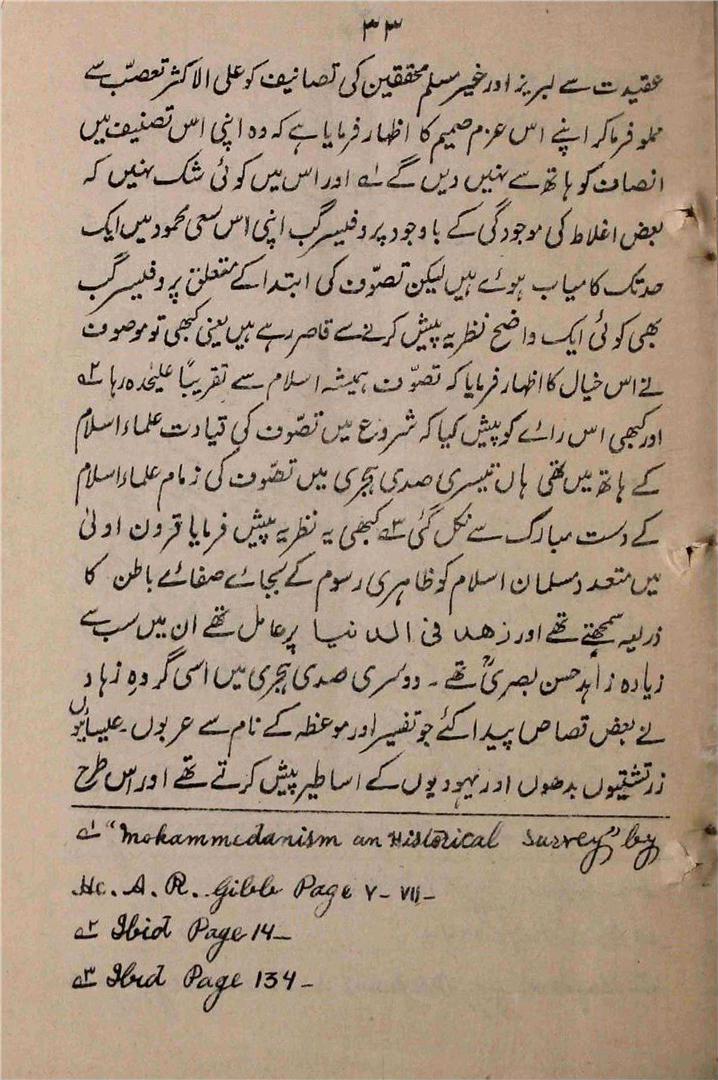 ۳۳
عقیدت سے لبریز اور غیر مسلم محققین کی تصانیف کو علی الاکثر تعصّب سے
مملو فرما کر اپنے اس عزم صمیم کا اظہار فرمایا ہے کہ وہ اپنی اس تصنیف میں
انصاف کو ہاتھ سے نہیں دیں گے ؎۱ اور اس میں کوئی شک نہیں کہ
بعض اغلاط کی موجودگی کے باوجود پروفیسر گب اپنی اس سعی محمود میں ایک
حد تک کامیاب ہوئے ہیں لیکن تصوّف کی ابتدا کے متعلق پروفیسر گب
بھی کوئی ایک واضح نظریہ پیش کرنے سے قاصر رہے ہیں یعنی کبھی تو موصوف
نے اس خیال کا اظہار فرمایا کہ تصوّف ہمیشہ اسلام سے تقریبًا علیٰحدہ رہا ؎۲
اور کبھی اس رائے کو پیش کیا کہ شروع میں تصّوف کی قیادت علماء اسلام
کے ہاتھ میں تھی ہاں تیسری صدی ہجری میں تصّوف کی زمام علماء اسلام
کے دست مبارک سے نکل گئی ؎۳ کبھی یہ نظریہ پیش فرمایا قرون اولیٰ
میں متعدد مسلمان اسلام کو ظاہری رسوم کے بجائے صفائے باطن کا
ذریعہ سمجھتے تھے اور زھد فی الدنیا پر عامل تھے ان میں سب سے
زیادہ زاہد حسن بصریؒ تھے ۔ دوسری صدی ہجری میں اسی گروہِ زہاد
نے بعض قصاص پیدا کئے جو تفسیر اور موعظہ کے نام سے عربوں ۔ عیسائیوں
زرتشتیوں بدھوں اور یہودیوں کے اساطیر پیش کرتے تھے اور اس طرح
؎۱ "Mohammedanism an Historical Survey" by
H. A. R. Gibb Page V - VII -
؎۲ Ibid Page 14 -
؎۳ Ibid Page 134 -